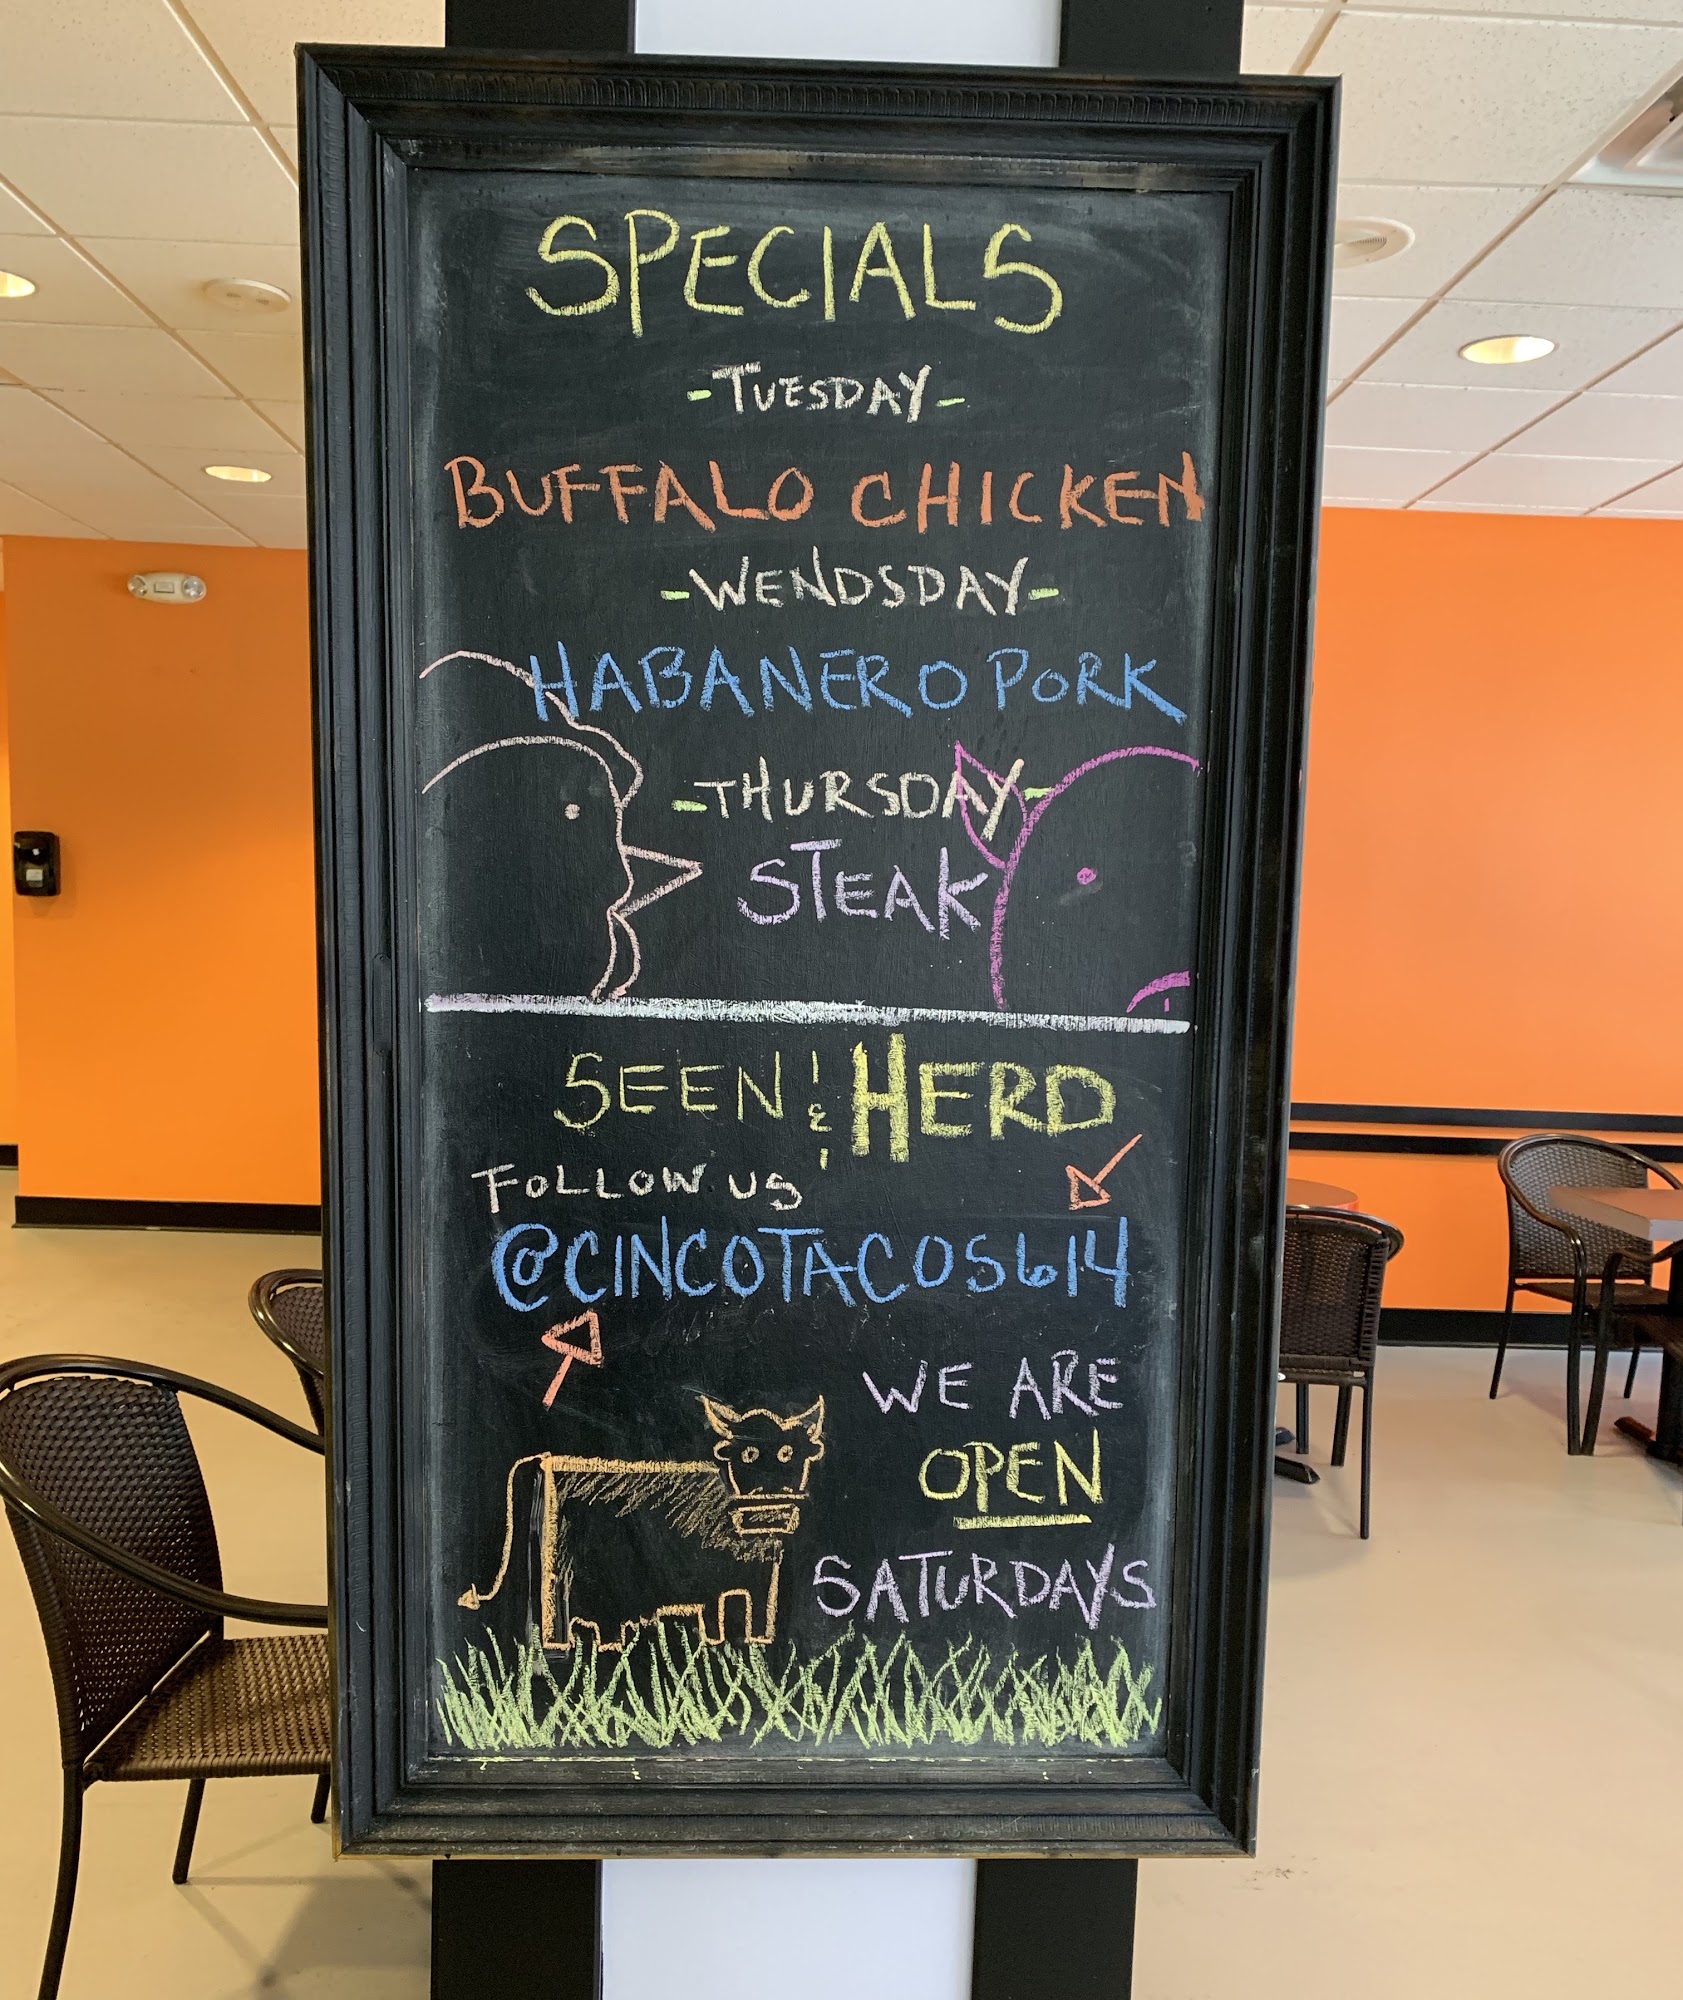 SPECIALS
-TUESDAY-
BUFFALO CHICKEN
-WENDSDAY-
HABANERO PORK
-THURSDAY-
STEAK
SEEN & HERD
FOLLOW US
@CINCOTACOS614
WE ARE
OPEN
SATURDAYS